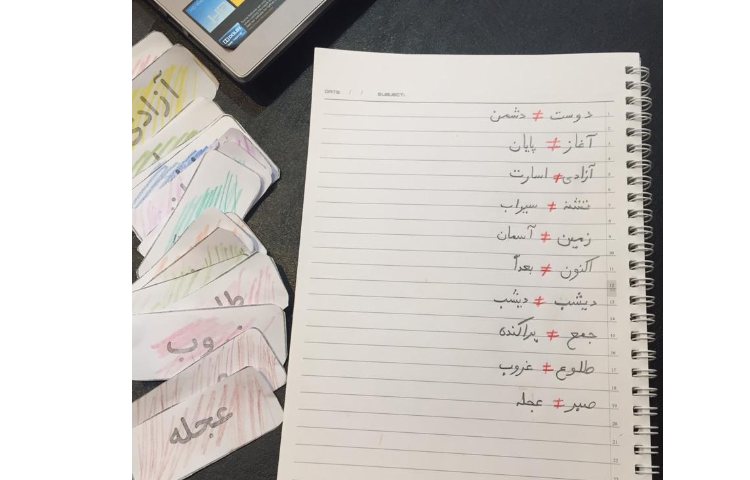 DATE: / / SUBJECT:
دوست ≠ دشمن
آغاز ≠ پایان
آزادی ≠ اسارت
تشنه ≠ سیراب
زمین ≠ آسمان
اکنون ≠ بعداً
دیشب ≠ دیشب
جمع ≠ پراکنده
طلوع ≠ غروب
صبر ≠ عجله
آزادی
عجله